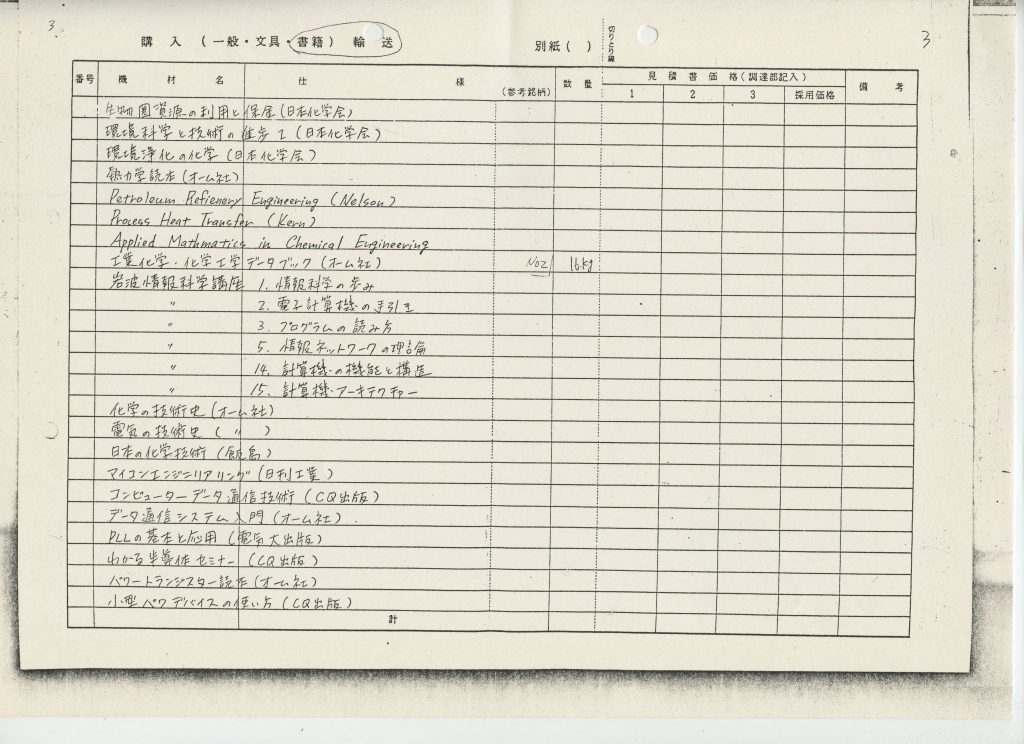 3
購入（一般・文具・書籍）輸送 別紙（ ） 切りとり線 3
番号 機材名 仕様 （参考銘柄） 数量 見積書価格（調達部記入） 備考
1 2 3 採用価格
生物圏資源の利用と保全（日本化学会）
環境科学と技術の進歩 I（日本化学会）
環境浄化の化学（日本化学会）
熱力学読本（オーム社）
Petroleum Refienery Engineering (Nelson)
Process Heat Transfer (Kern)
Applied Mathmatics in Chemical Engineering
工業化学・化学工学データブック（オーム社） No2 16kg
岩波情報科学講座 1. 情報科学の歩み
〃 2. 電子計算機の手引き
〃 3. プログラムの読み方
〃 5. 情報ネットワークの理論
〃 14. 計算機の機能と構造
〃 15. 計算機アーキテクチャー
化学の技術史（オーム社）
電気の技術史（ 〃 ）
日本の化学技術（飯島）
マイコンエンジニリアリング（日刊工業）
コンピューターデータ通信技術（CQ出版）
データ通信システム入門（オーム社）
PLLの基本と応用（電気大出版）
わかる半導体セミナー（CQ出版）
パワートランジスター読本（オーム社）
小型パワデバイスの使い方（CQ出版）
計